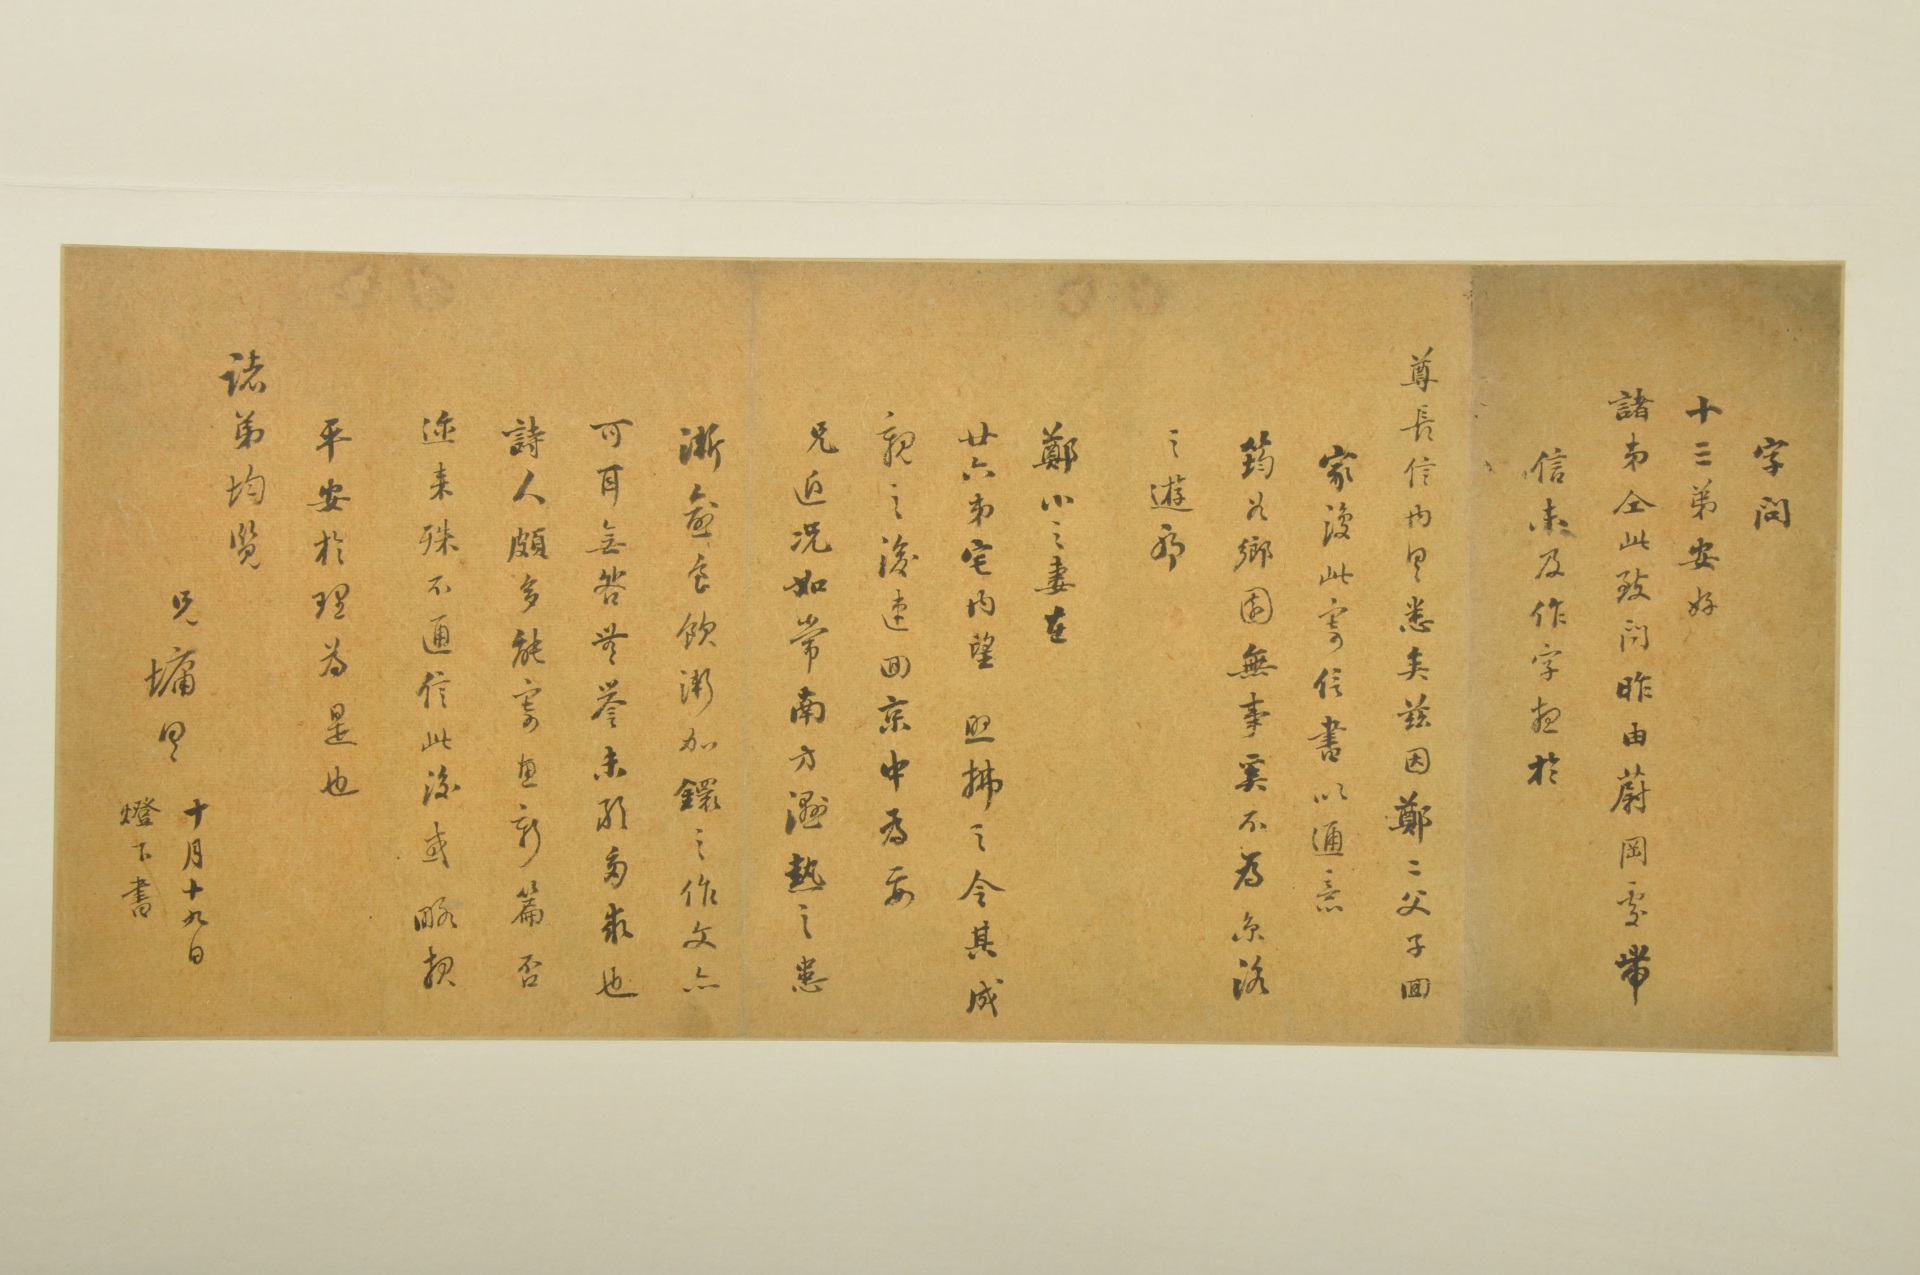 字问
十三弟安好
諸弟仝此致问昨由蔚岡处带
信未及作字想於
尊長信内具悉矣兹因鄭二父子囬
家後此寄信書以通意
筠如鄉園無事奚不為京洛
之遊耶
鄭小之妻在
廿六弟宅内望照拂之令其成
親之後速囬京中為妥
兄近况如常南方濕熱之患
漸愈飲漸加鐶之作文亦
可耳無咎無譽未能多求也
詩人頗多能寄惠新篇否
迩来殊不通信此後或略報
平安於理為是也
諸弟均覽
兄墉具
十月十九日
燈下書